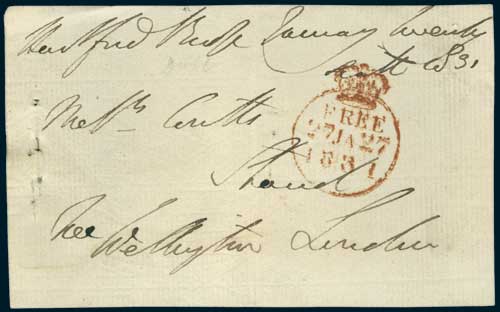 Hartford Bridge January twenty
sixth 1831
Messrs Coutts
FREE
27 JA 27
1831
Strand
Free Wellington London